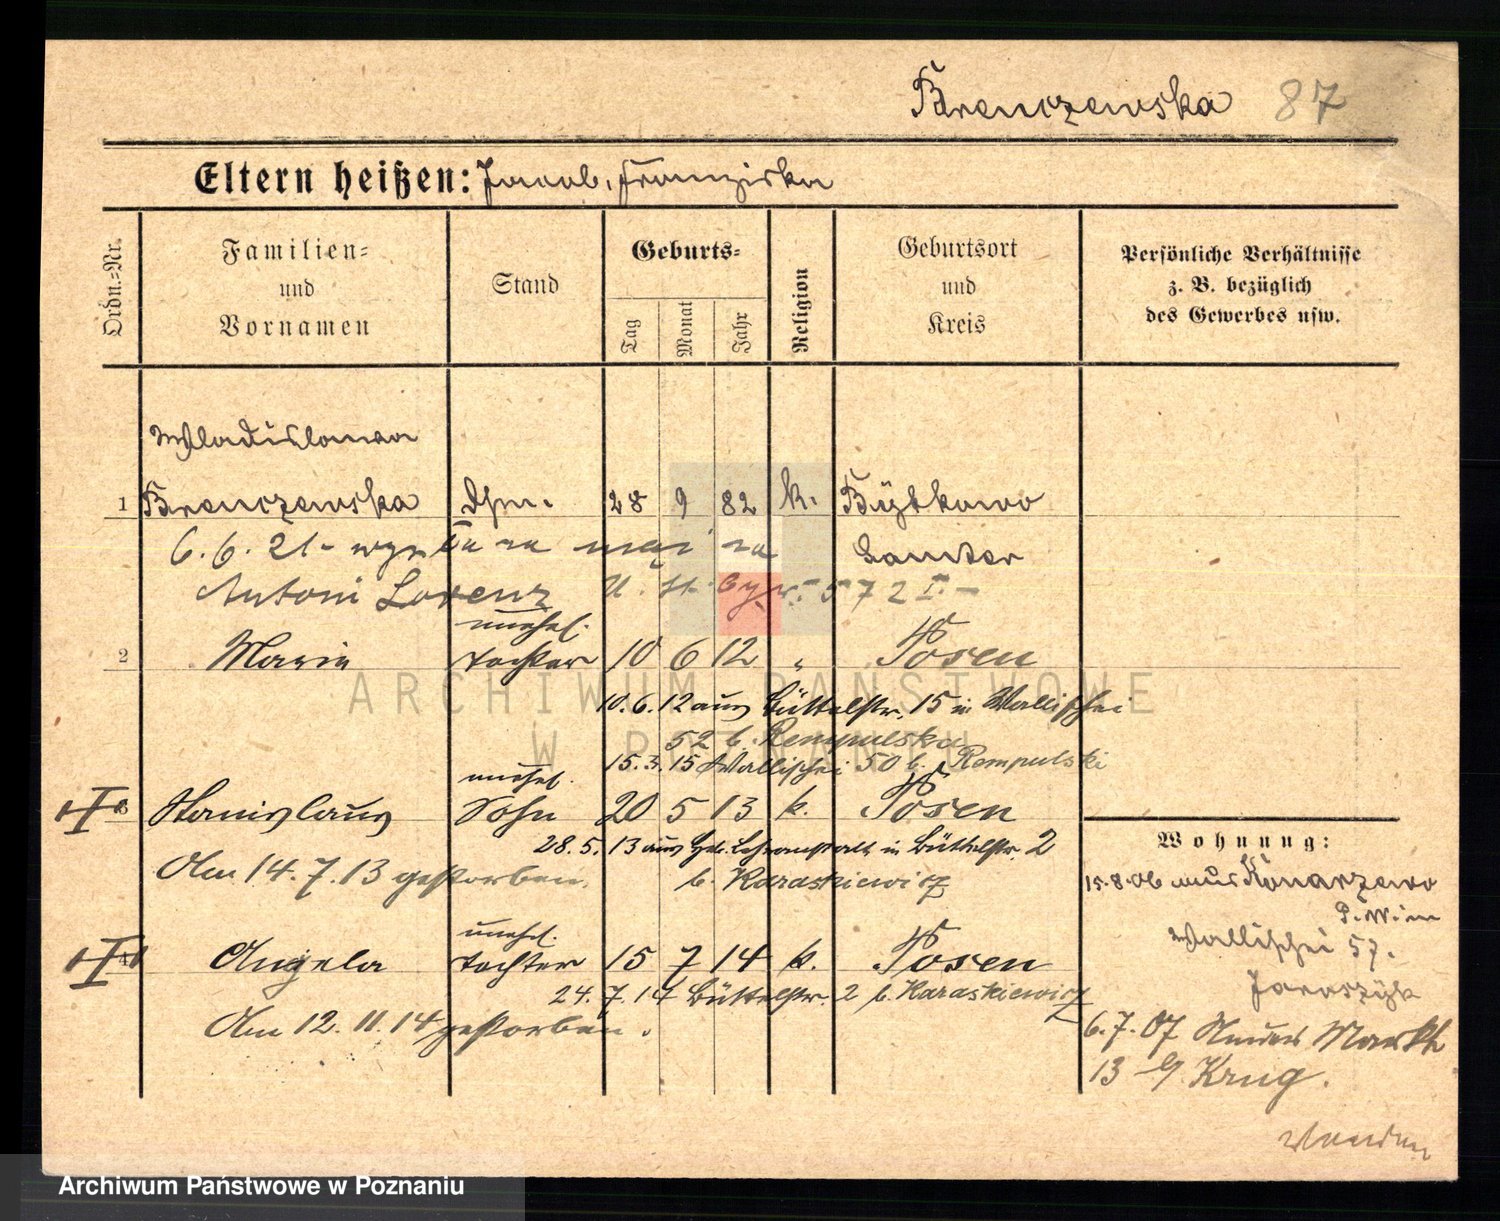 Brenczewska 87
Eltern heißen: Jacob, Franziska
Ordn.-Nr.
Familien-
und
Vornamen
Stand
Geburts-
Tag
Monat
Jahr
Religion
Geburtsort
und
Kreis
Persönliche Verhältnisse
z. B. bezüglich
des Gewerbes usw.
Wladislawa
1 Brenczewska Dstm. 28 9 82 k. Bytkowo
6.6.21 - za mąż za Samter
Antoni Lorenz U. St. 572 I. -
unehel.
2 Maria Tochter 10 6 12 " Posen
10.6.12 aus Büttelstr. 15 in Wallischei
52 b. Rempulska
15.3.15 Wallischei 50 b. Rempulski
unehel.
3 Stanislaus Sohn 20 5 13 k. Posen
28.5.13 aus Heb. Lehranstalt in Büttelstr. 2
Am 14.7.13 gestorben. b. Karaskiewicz
unehel.
4 Angela Tochter 15 7 14 k. Posen
24.7.14 Büttelstr. 2 b. Karaskiewicz
Am 12.11.14 gestorben.
Wohnung:
15.8.06 aus Konarzewo
P. W. in
Wallischei 57.
Jaraszyk
6.7.07 Neuer Markt
13 b/ Krug.
ARCHIWUM PAŃSTWOWE
W POZNANIU
Archiwum Państwowe w Poznaniu